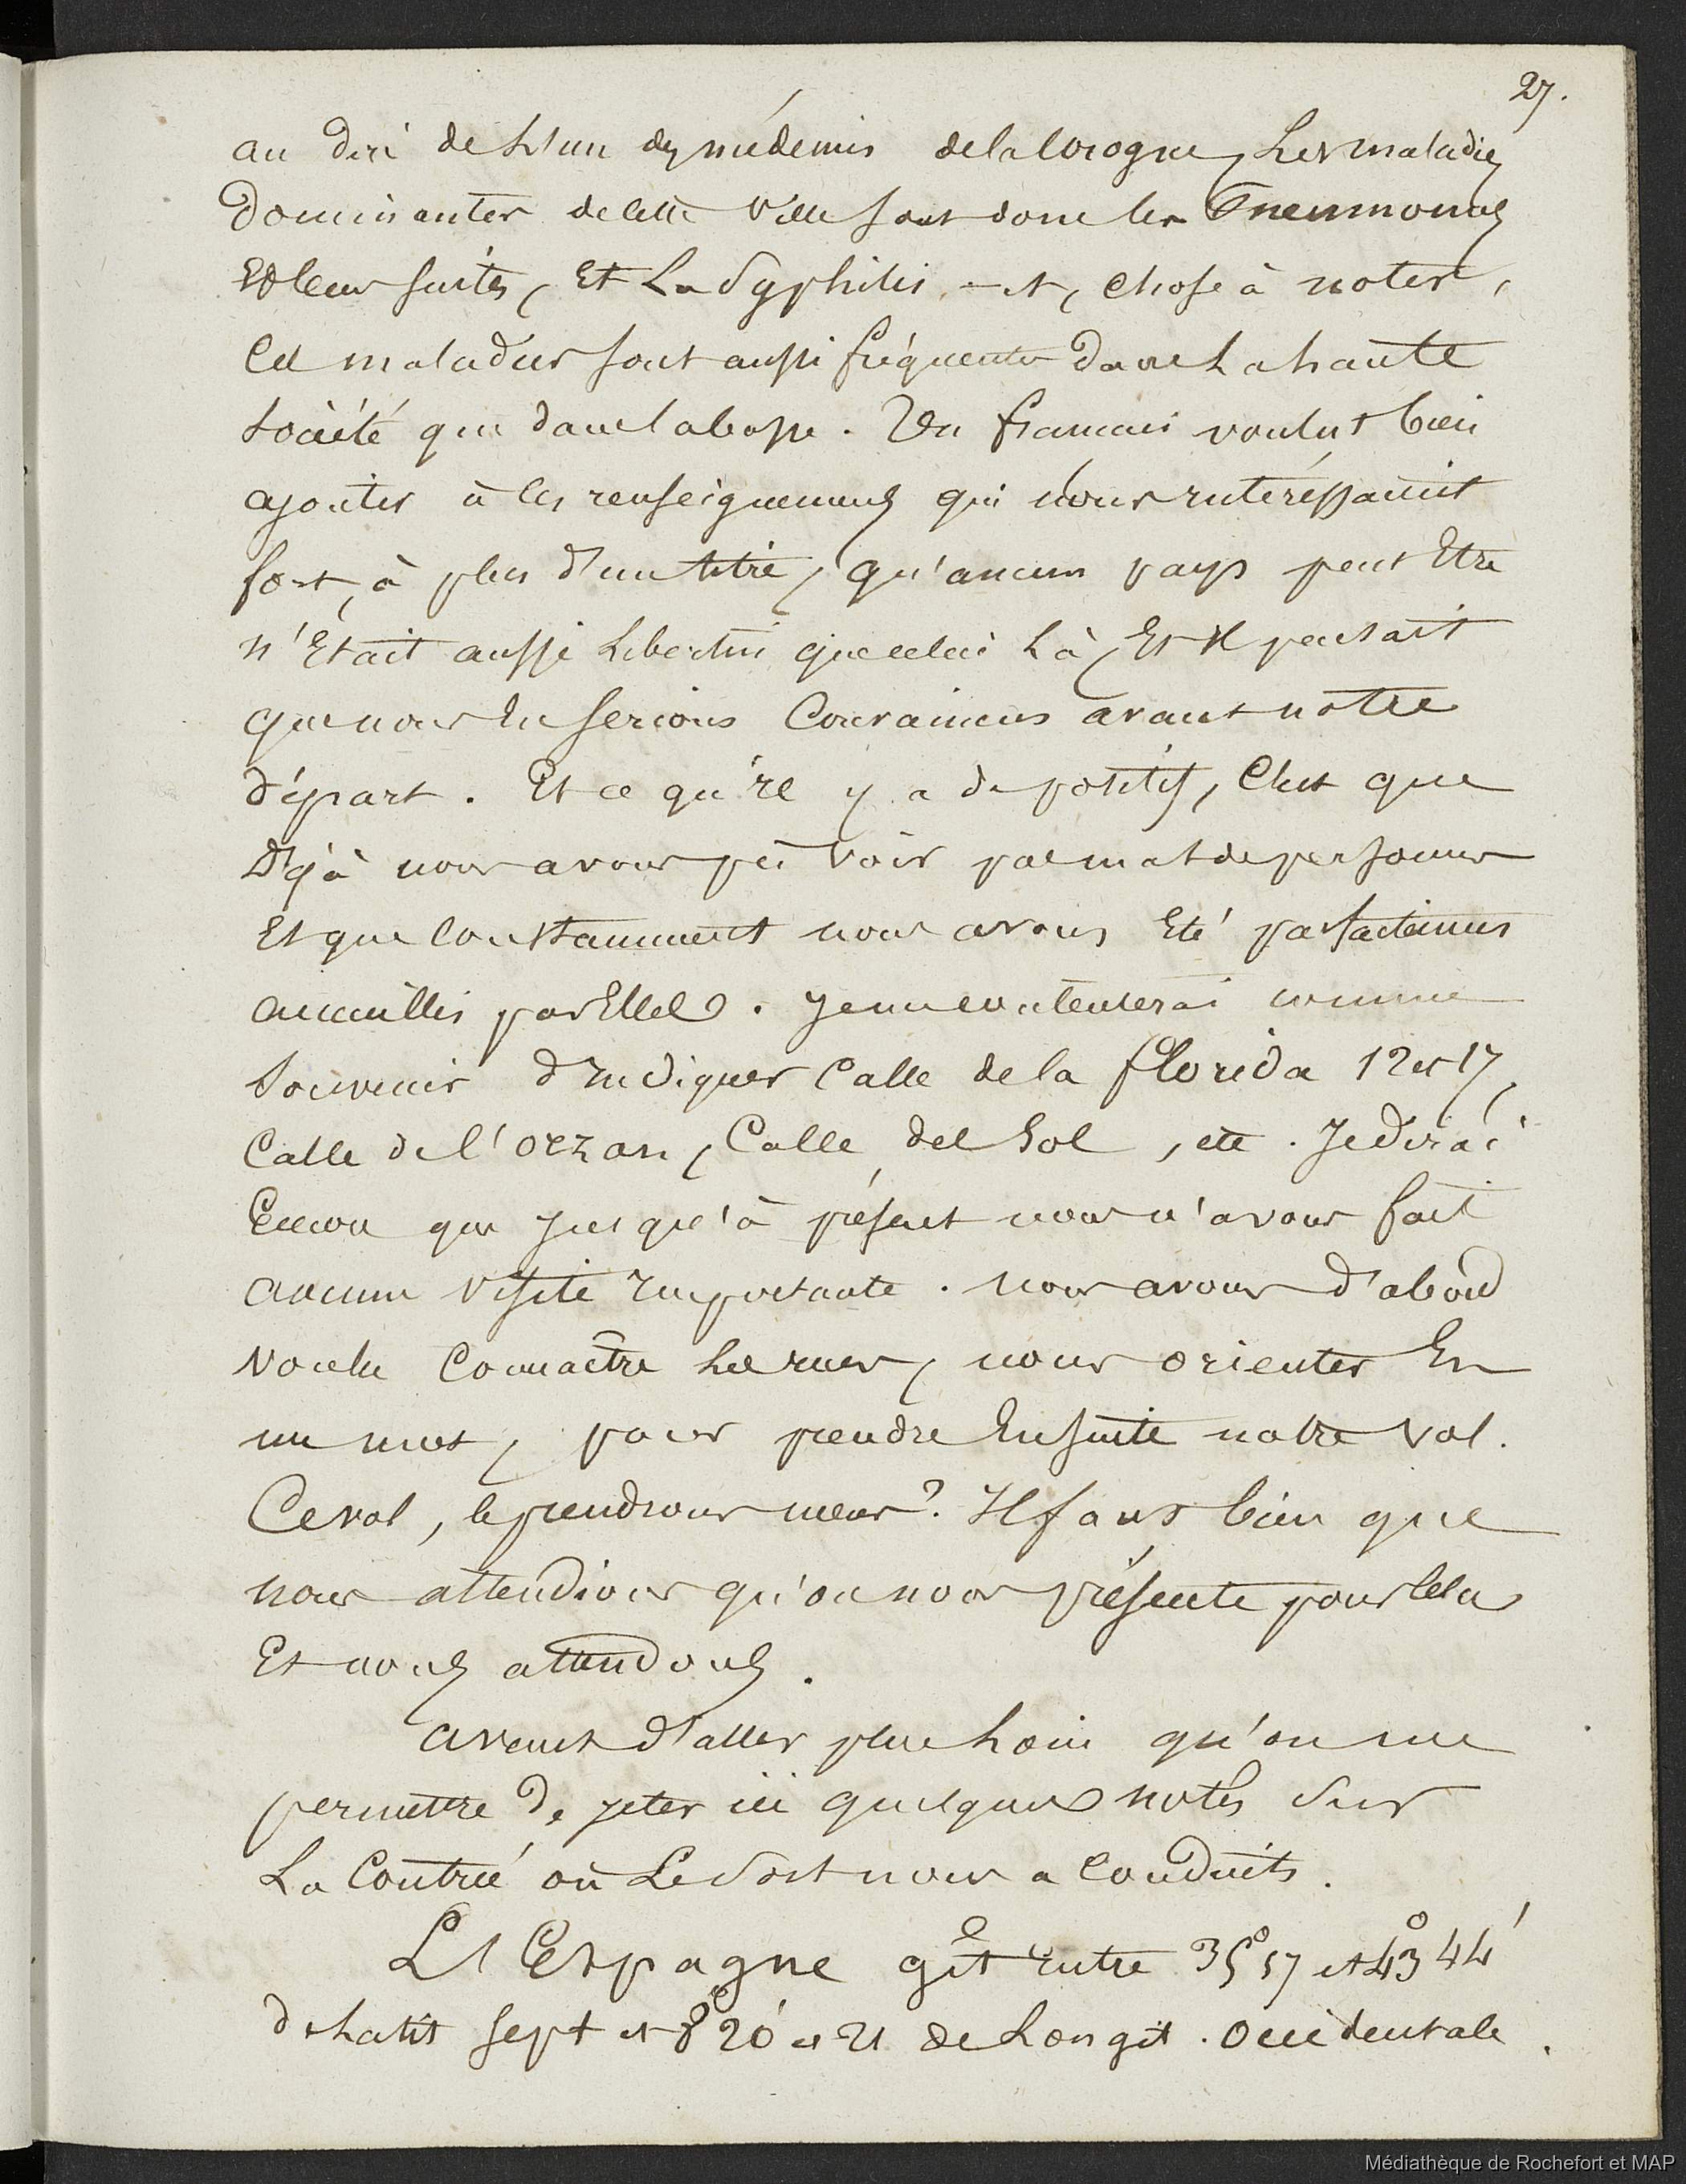 27.
au dire de l'un des médecins de la Corogne, les maladies
dominantes de cette ville sont donc les Pneumonies
Et leurs suites, Et La Syphilis, - et, chose à noter,
Ces maladies sont aussi fréquentes dans La haute
société que dans la basse. Un français voulut bien
ajouter à ces renseignemens qui nous intéressaient
fort, à plus d'un titre, qu'aucun pays peut Etre
n'Etait aussi Libertin que celui Là, Et Il pensait
que nous En serions Convaincus avant notre
départ. Et ce qu'il y a de positif, C'est que
Déjà nous avons pu voir pas mal de personnes
Et que Constamment nous avons Eté parfaitement
accueillis par Elles. Je me contenterai comme
Souvenir d'Indiquer Calle de la florida 12 et 17,
Calle de l'orzan, Calle del Sol, etc. Je dirai
Encore que jusqu'à présent nous n'avons fait
aucune visite Importante. nous avons d'abord
voulu Connaître Les rues, nous orienter En
un mot, pour prendre Ensuite notre vol.
Ce vol, le prendrons nous? Il faut bien que
nous attendions qu'on nous présente pour Cela
Et nous attendons.
avant d'aller plus Loin qu'on me
permettre de jeter ici quelques notes sur
La Contrée où Le Sort nous a Conduits.
L'Espagne gît entre 35° 57 et 43° 44'
de Latit sept et 8° 20' et 21 de Longit. occidentale.
Médiathèque de Rochefort et MAP